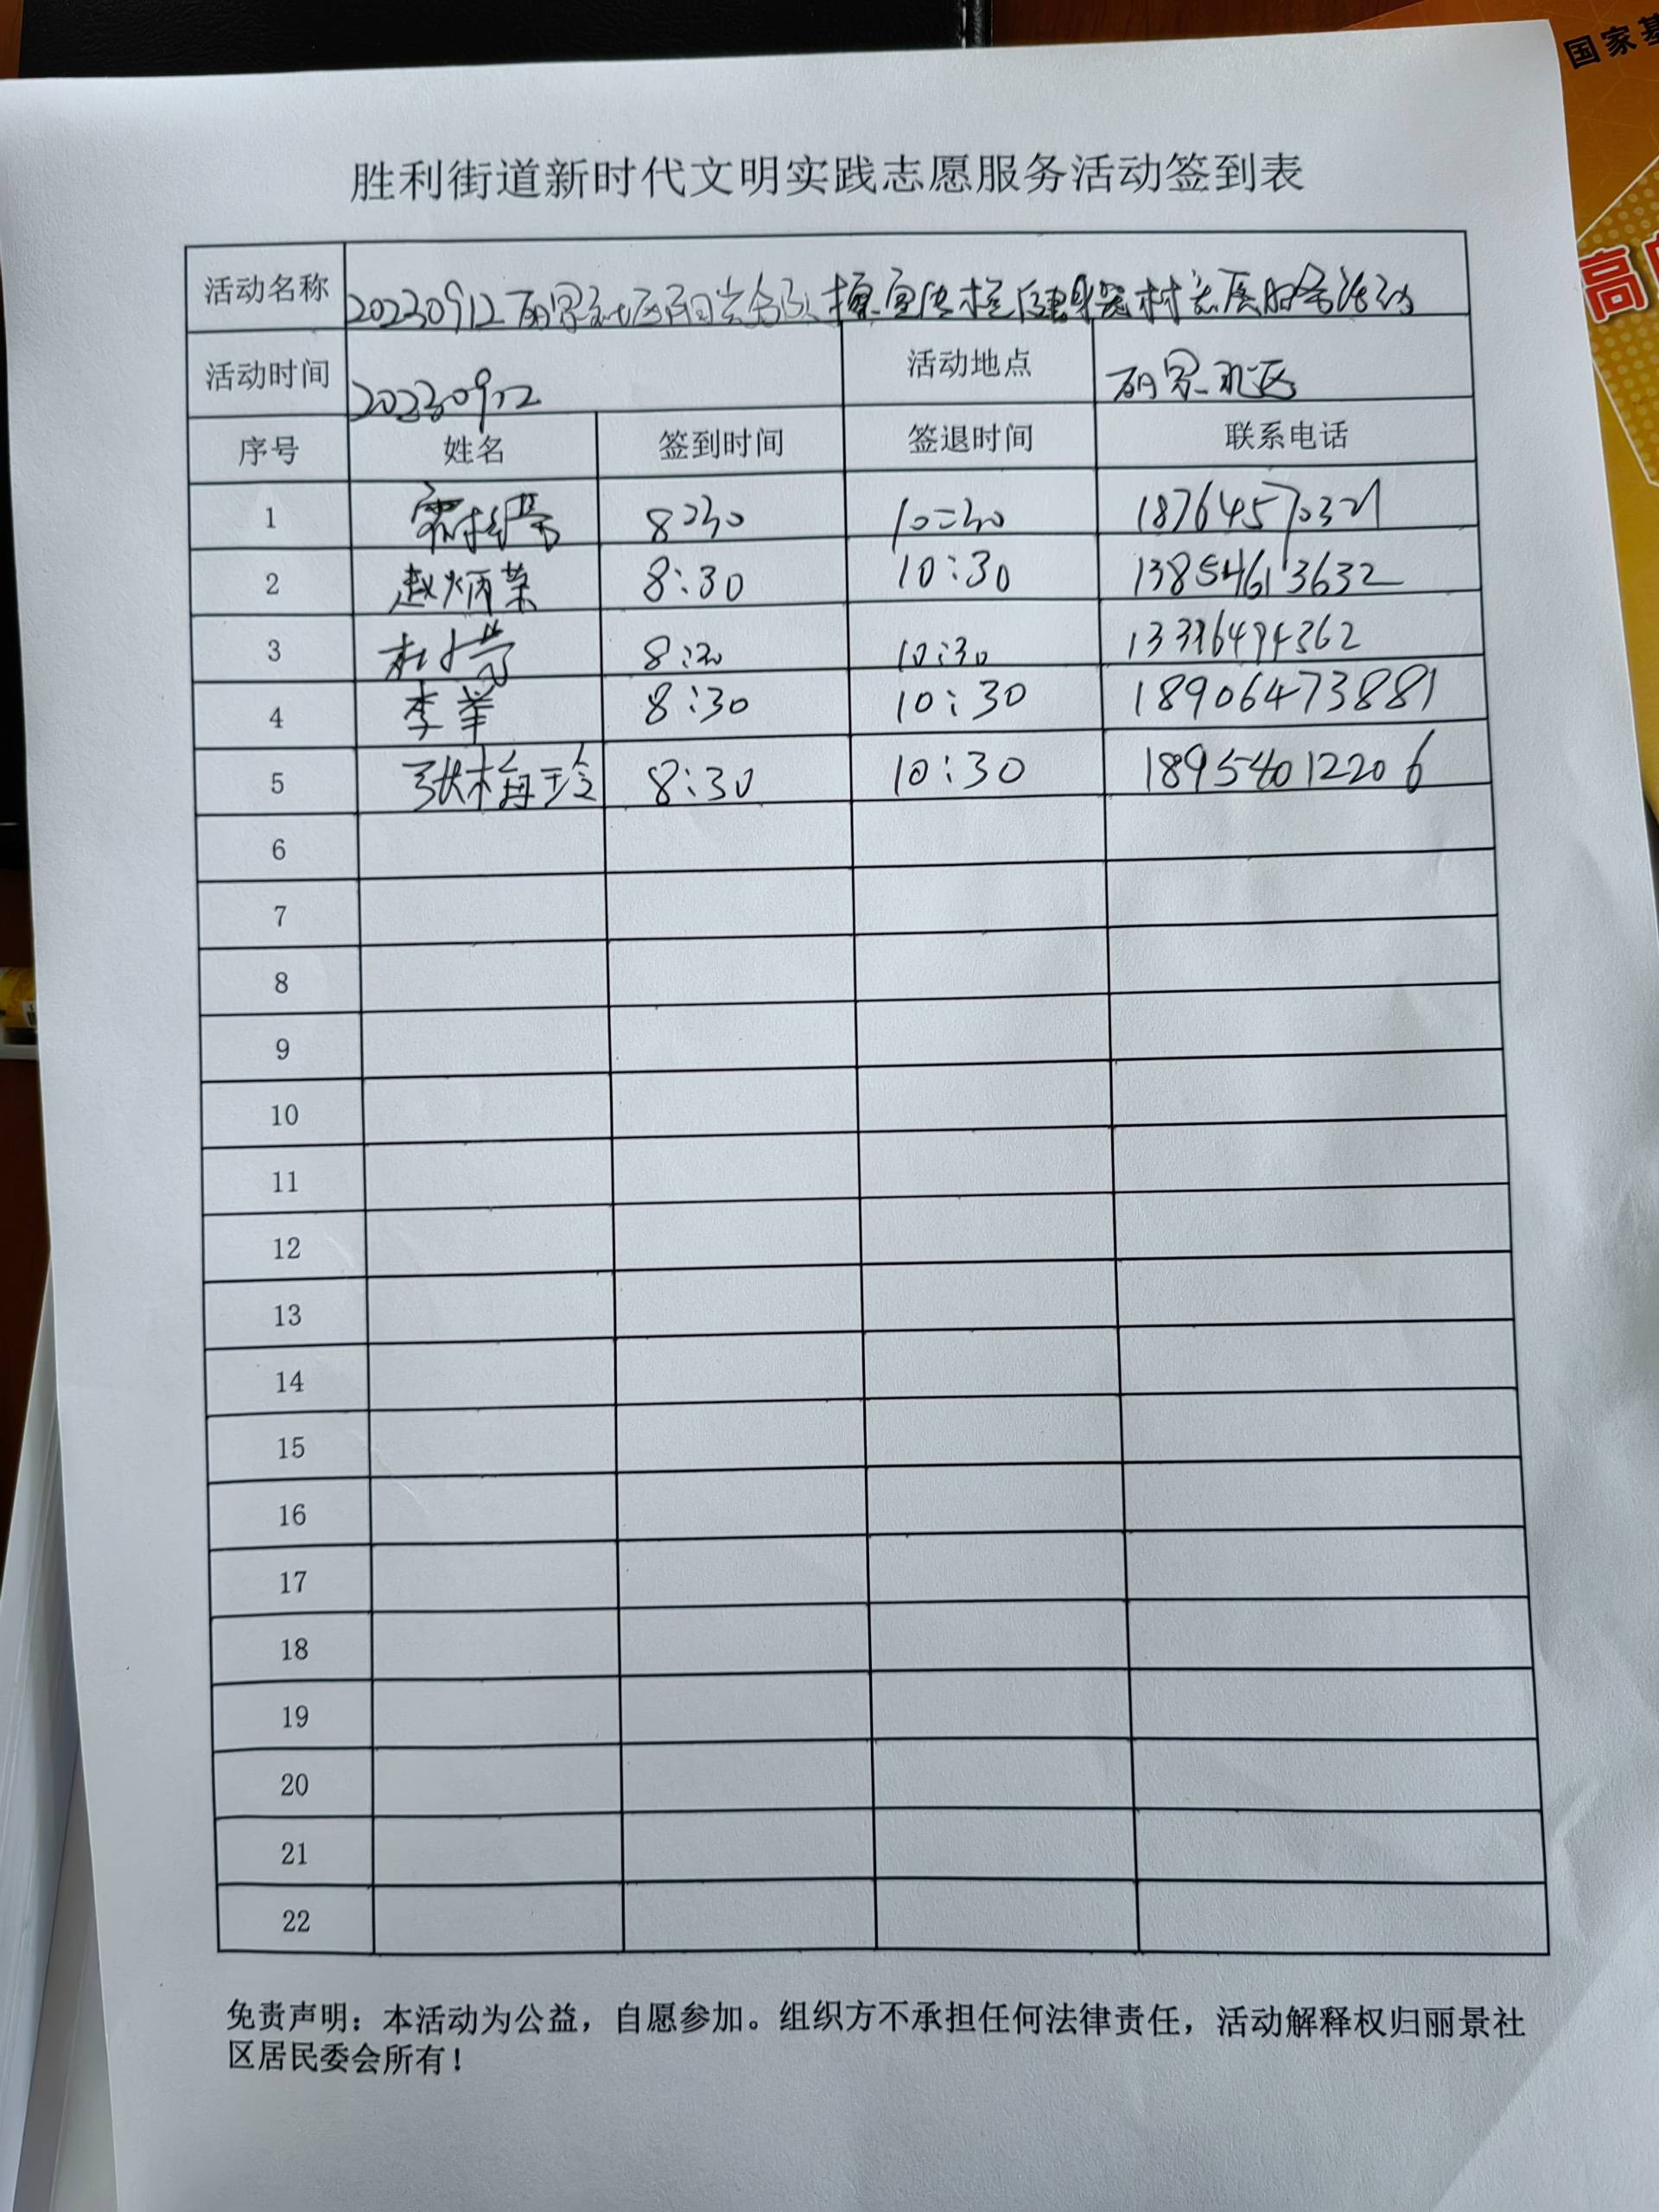 国家基
高
胜利街道新时代文明实践志愿服务活动签到表
活动名称 20230912丽景社区阳光 擦宣传栏健身器材志愿服务活动
活动时间 20230912 活动地点 丽景社区
序号 姓名 签到时间 签退时间 联系电话
1 8:30 10:30 18764570321
2 赵炳荣 8:30 10:30 13854613632
3 8:30 10:30
4 李华 8:30 10:30 18906473881
5 张梅玲 8:30 10:30 18954012206
6
7
8
9
10
11
12
13
14
15
16
17
18
19
20
21
22
免责声明：本活动为公益，自愿参加。组织方不承担任何法律责任，活动解释权归丽景社
区居民委会所有！